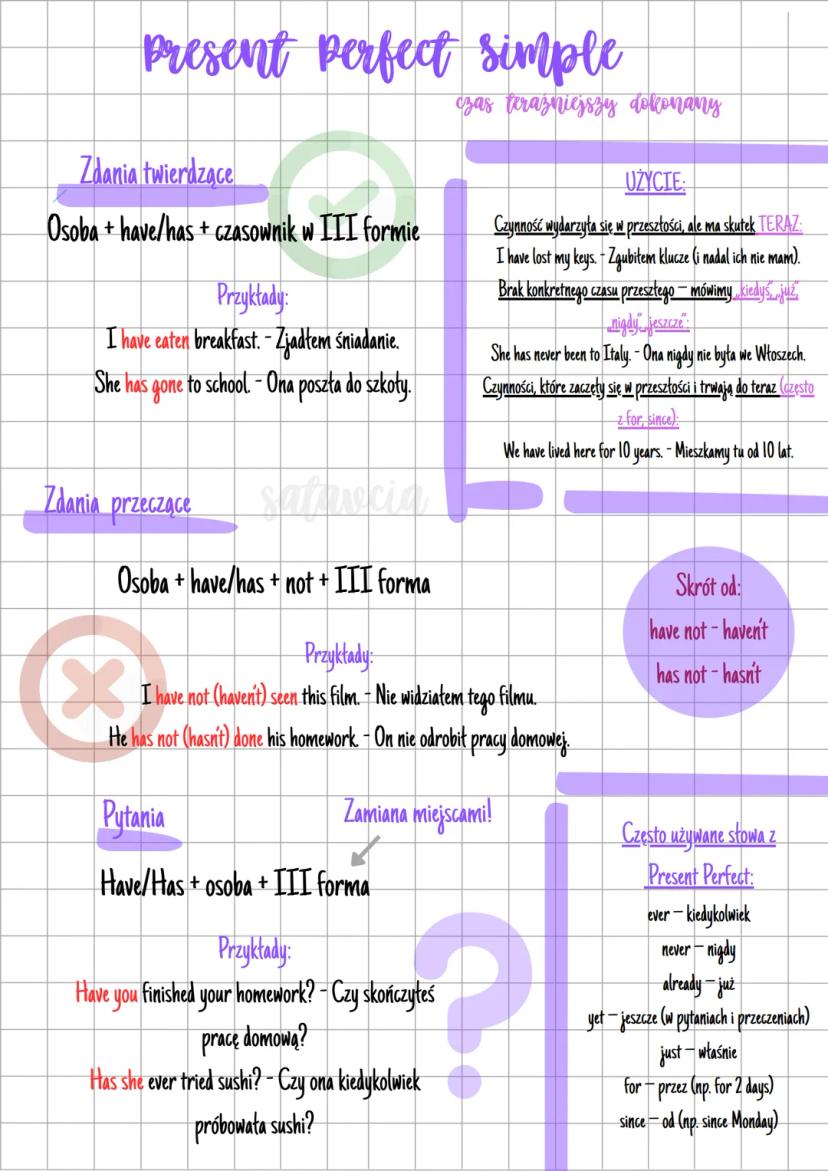 Present Perfect Simple
czas teraźniejszy dokonany
Zdania twierdzące
Osoba + have/has + czasownik w III formie
Przykłady:
I have eaten breakfast. - Zjadłem śniadanie.
She has gone to school. - Ona poszła do szkoły.
UŻYCIE:
Czynność wydarzyła się w przeszłości, ale ma skutek TERAZ:
I have lost my keys. - Zgubiłem klucze (i nadal ich nie mam).
Brak konkretnego czasu przeszłego – mówimy „kiedyś”, „już”,
„nigdy”, „jeszcze”:
She has never been to Italy. - Ona nigdy nie była we Włoszech.
Czynności, które zaczęły się w przeszłości i trwają do teraz (często
z for, since):
We have lived here for 10 years. - Mieszkamy tu od 10 lat.
Zdania przeczące
satavcia
Osoba + have/has + not + III forma
Przykłady:
I have not (haven't) seen this film. - Nie widziałem tego filmu.
He has not (hasn't) done his homework. - On nie odrobił pracy domowej.
Skrót od:
have not - haven't
has not - hasn't
Pytania
Zamiana miejscami!
Have/Has + osoba + III forma
Przykłady:
Have you finished your homework? - Czy skończyłeś
pracę domową?
Has she ever tried sushi? - Czy ona kiedykolwiek
próbowała sushi?
Często używane słowa z
Present Perfect:
ever – kiedykolwiek
never – nigdy
already – już
yet – jeszcze (w pytaniach i przeczeniach)
just – właśnie
for – przez (np. for 2 days)
since – od (np. since Monday)